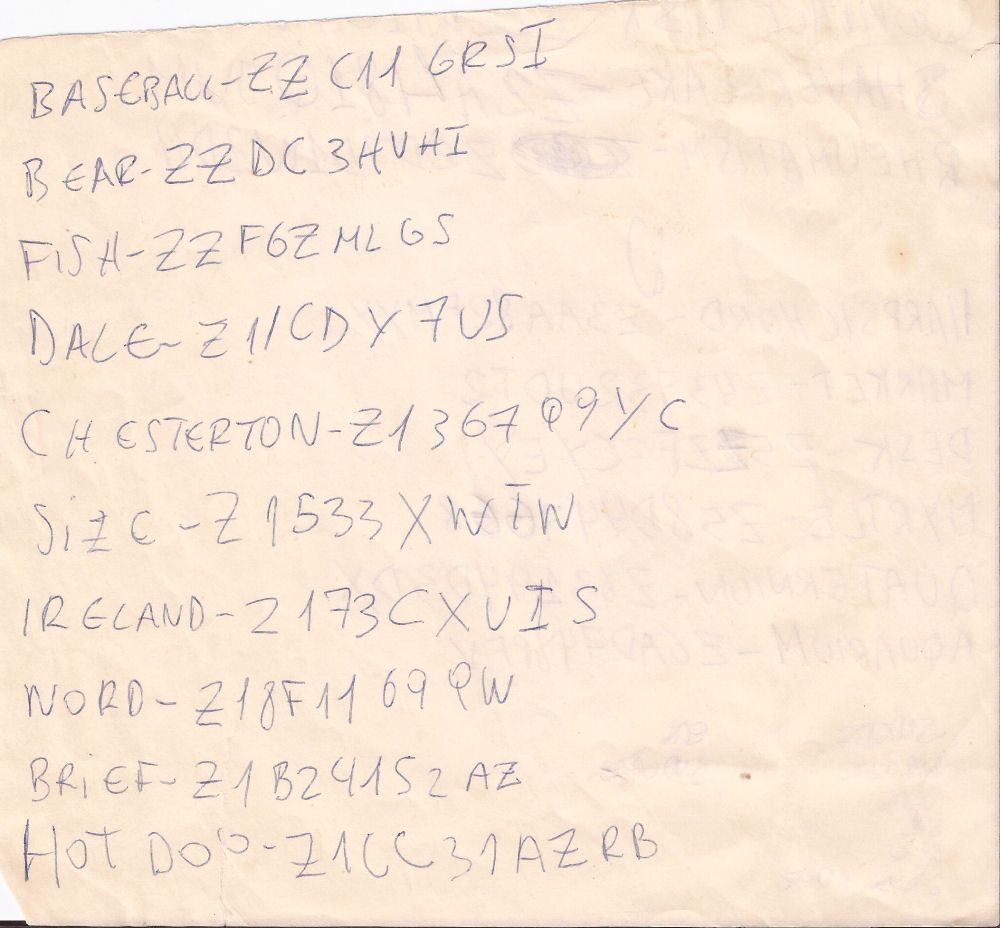 BASEBALL-ZZ C11 GRSI
BEAR-ZZDC3HVHI
FiSH-ZZFGZMLGS
DALE-Z11CDY7US
CHESTERTON-Z1367Q9YC
SiZE-Z1533XWIW
IRELAND-Z173CXUIS
NORD-Z18F1169QW
BRiEF-Z1B24152AZ
HOT DOG-Z1CC31AZRB